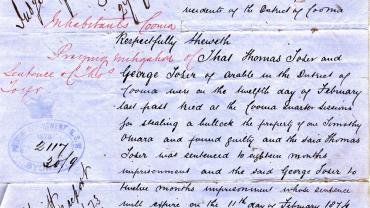 residents of the District of Cooma
Inhabitants Cooma
Respectfully Sheweth
Praying mitigation of
Sentence of Thos
Toser
That Thomas Toser and
George Toser of Arable in the District of
Cooma were on the twelfth day of February
last past tried at the Cooma Quarter Sessions
for stealing a bullock the property of one Timothy
Omara and found guilty and the said Thomas
Toser was sentenced to eighteen months
imprisonment and the said George Toser to
twelve months imprisonment whose sentence
will expire on the 11th day of February 1874
2117
20/9
report